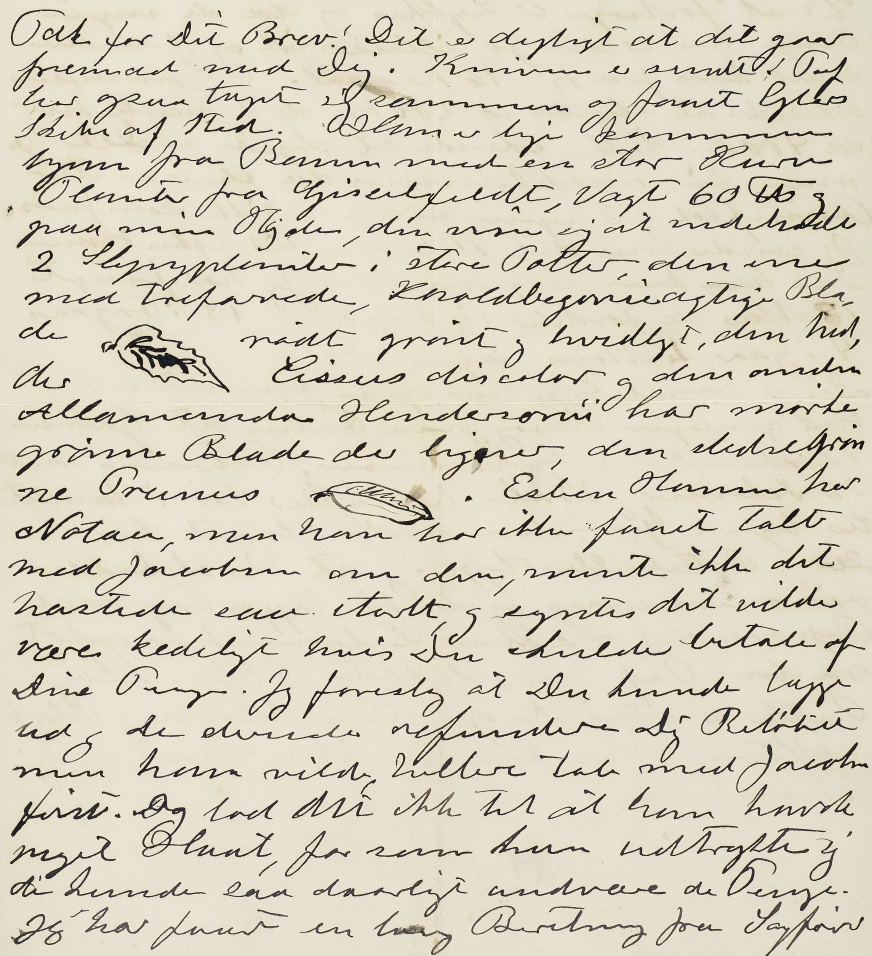 Tak for Dit Brev! Det er dejligt at det gaar
fremad med Dig. Knivene er sendt!
har ogsaa taget sig sammen og faaet
Skibe af Sted. Han er lige kommen
hjem fra Banen med en stor Kurv
Planter fra Gisselfeldt, Vægt 60 ℔ og
paa min Højde, den viser sig at indeholde
2 Slyngplanter i store Potter, den ene
med trefarvede, Kroldbegonieagtige Bla,
de rødt grønt og hvidligt, den hed,
der Cissus discolor og den anden
Allamanda Hendersonii har mørke
grønne Blade der ligner den stedsegrøn
ne Prunus . Esben Hansen har
Notaen, men han har ikke faaet talt
med Jacobsen om den, mente ikke det
hastede saa stærkt, og syntes det vilde
være kedeligt hvis Du skulde betale af
Dine Penge. Jeg foreslog at Du kunde lægge
ud og de derinde refundere Dig Beløbet
men han vilde hellere tale med Jacobsen
først. Og lod det ikke til at han havde
noget Hast, for som han udtrykte sig
de kunde saa daarligt undvære de Penge.
Jeg har faaet en lang Beretning fra Sagfører